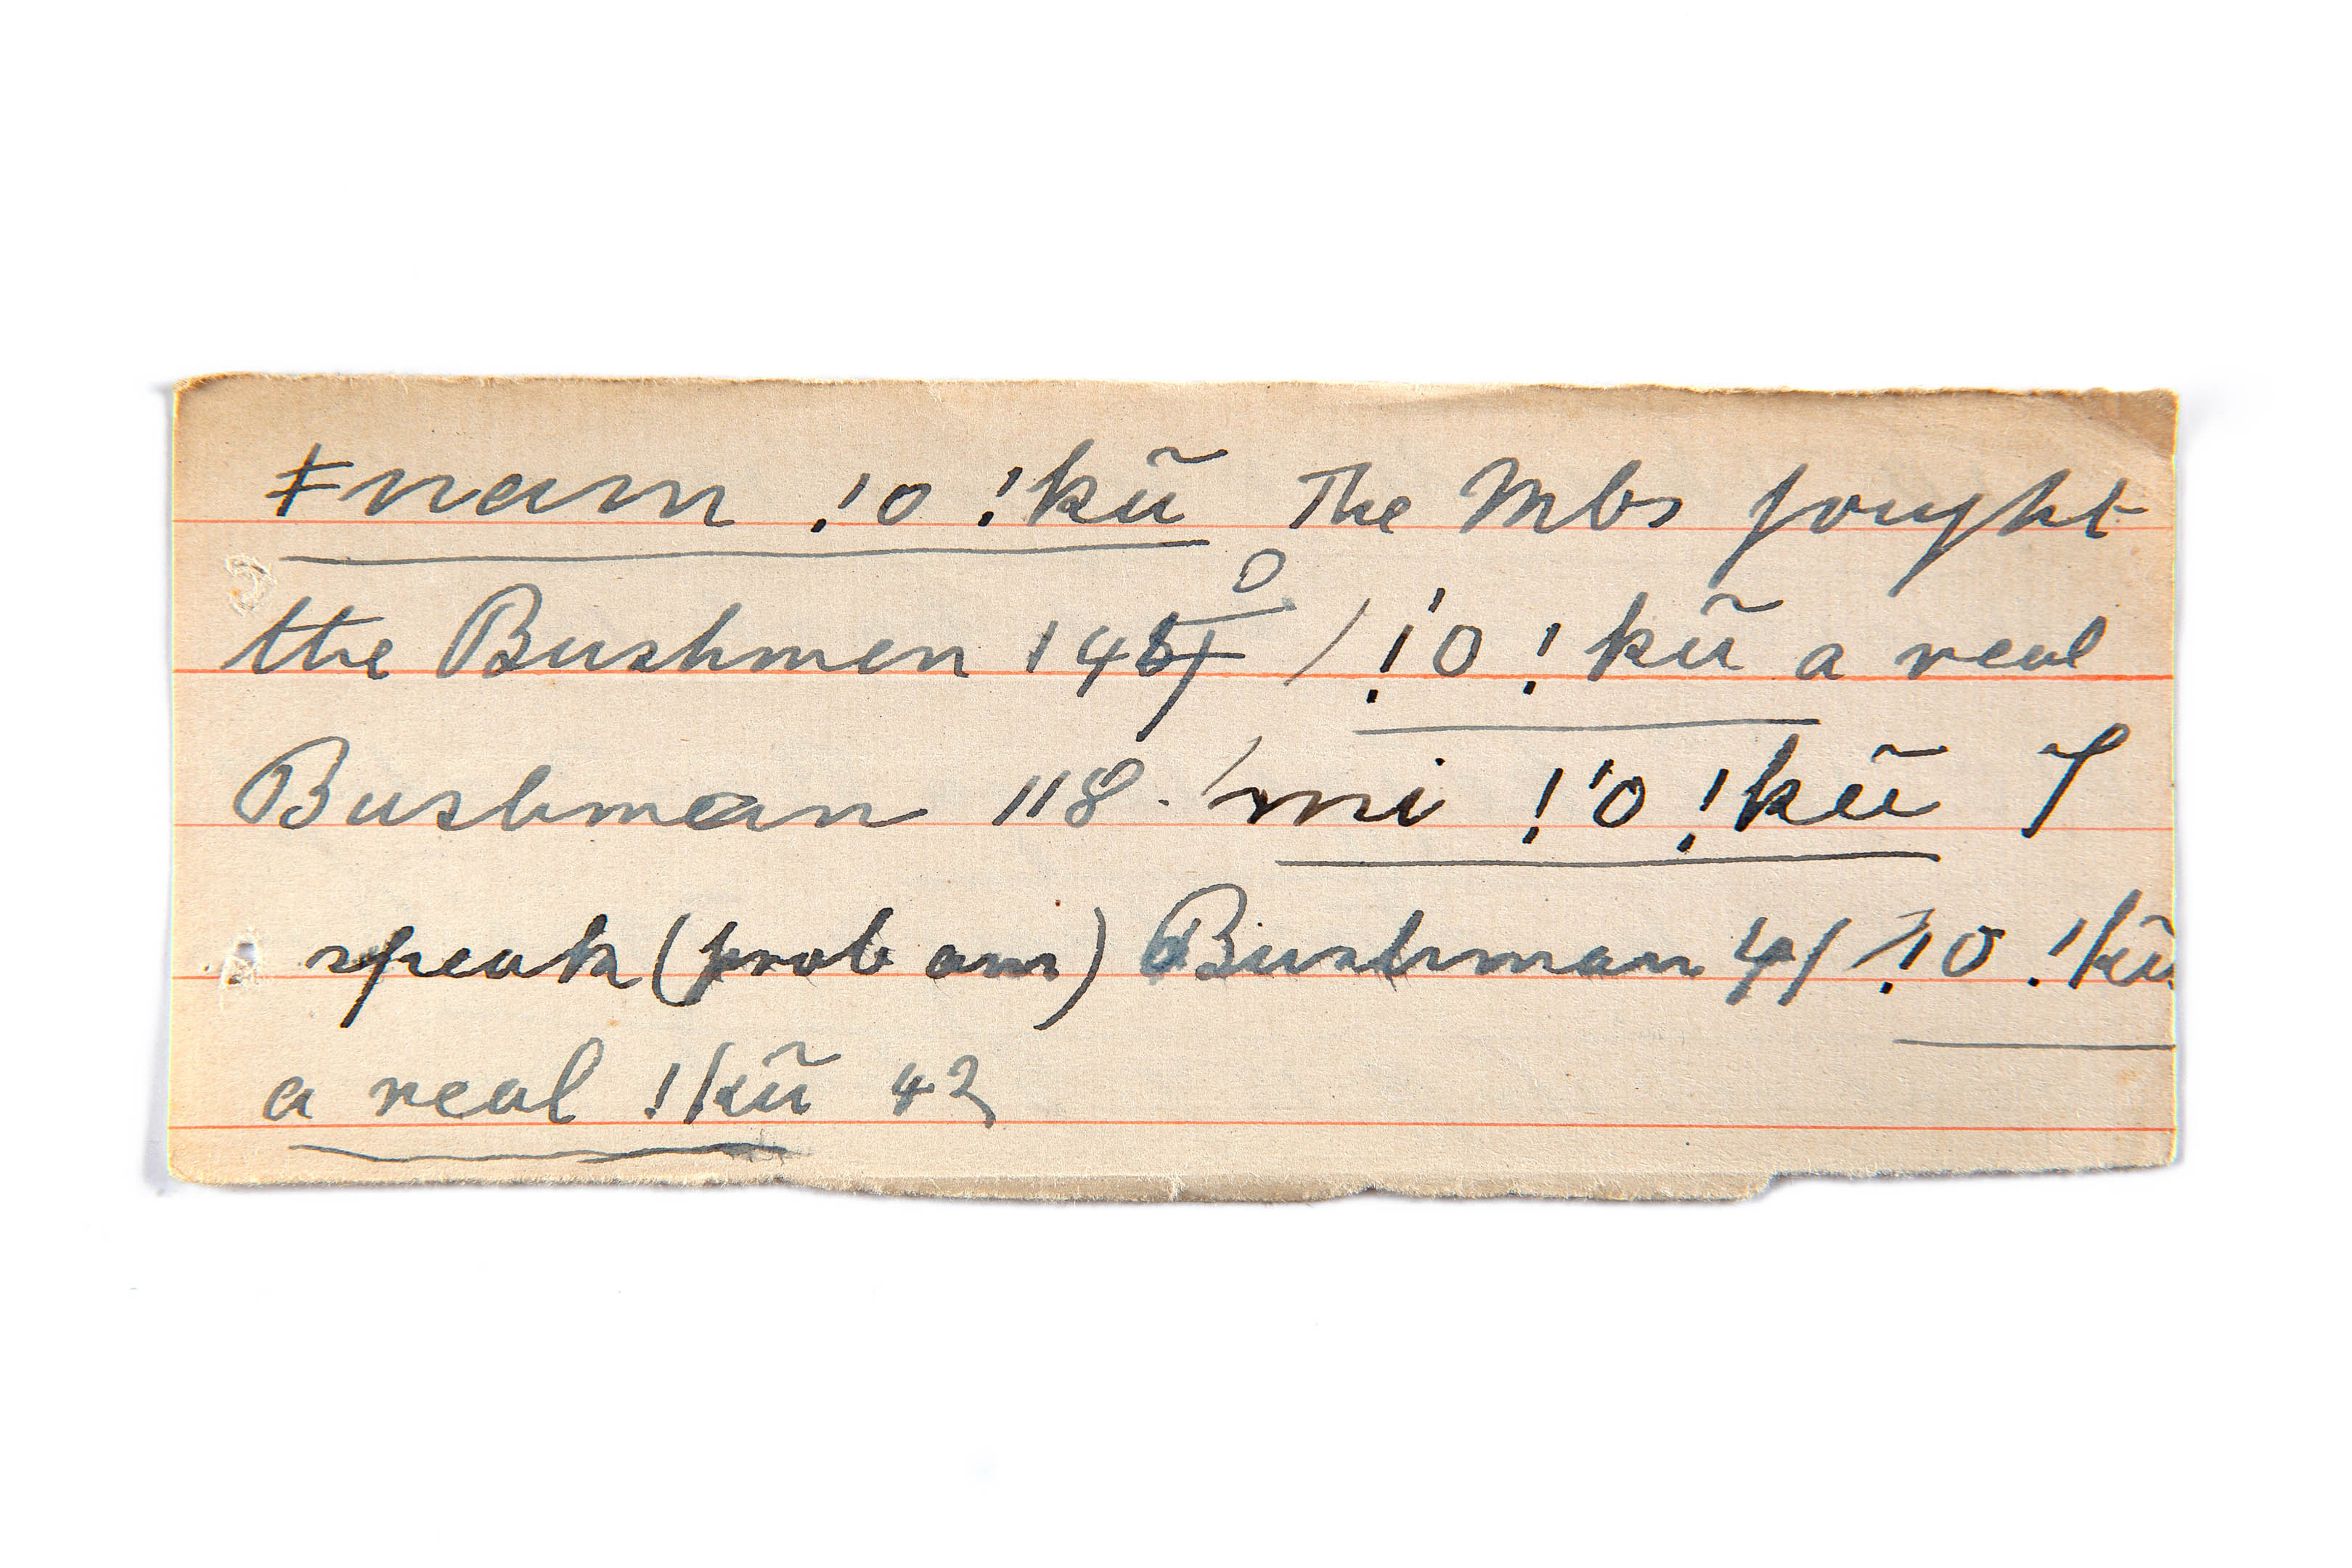 ǂnam !o !kũ The Mbs fought
the Bushmen 145 / !'o !kũ a real
Bushman 118. / mi !'o !kũ I
speak (prob am) Bushman 41 / !o !kũ
a real !kũ 42